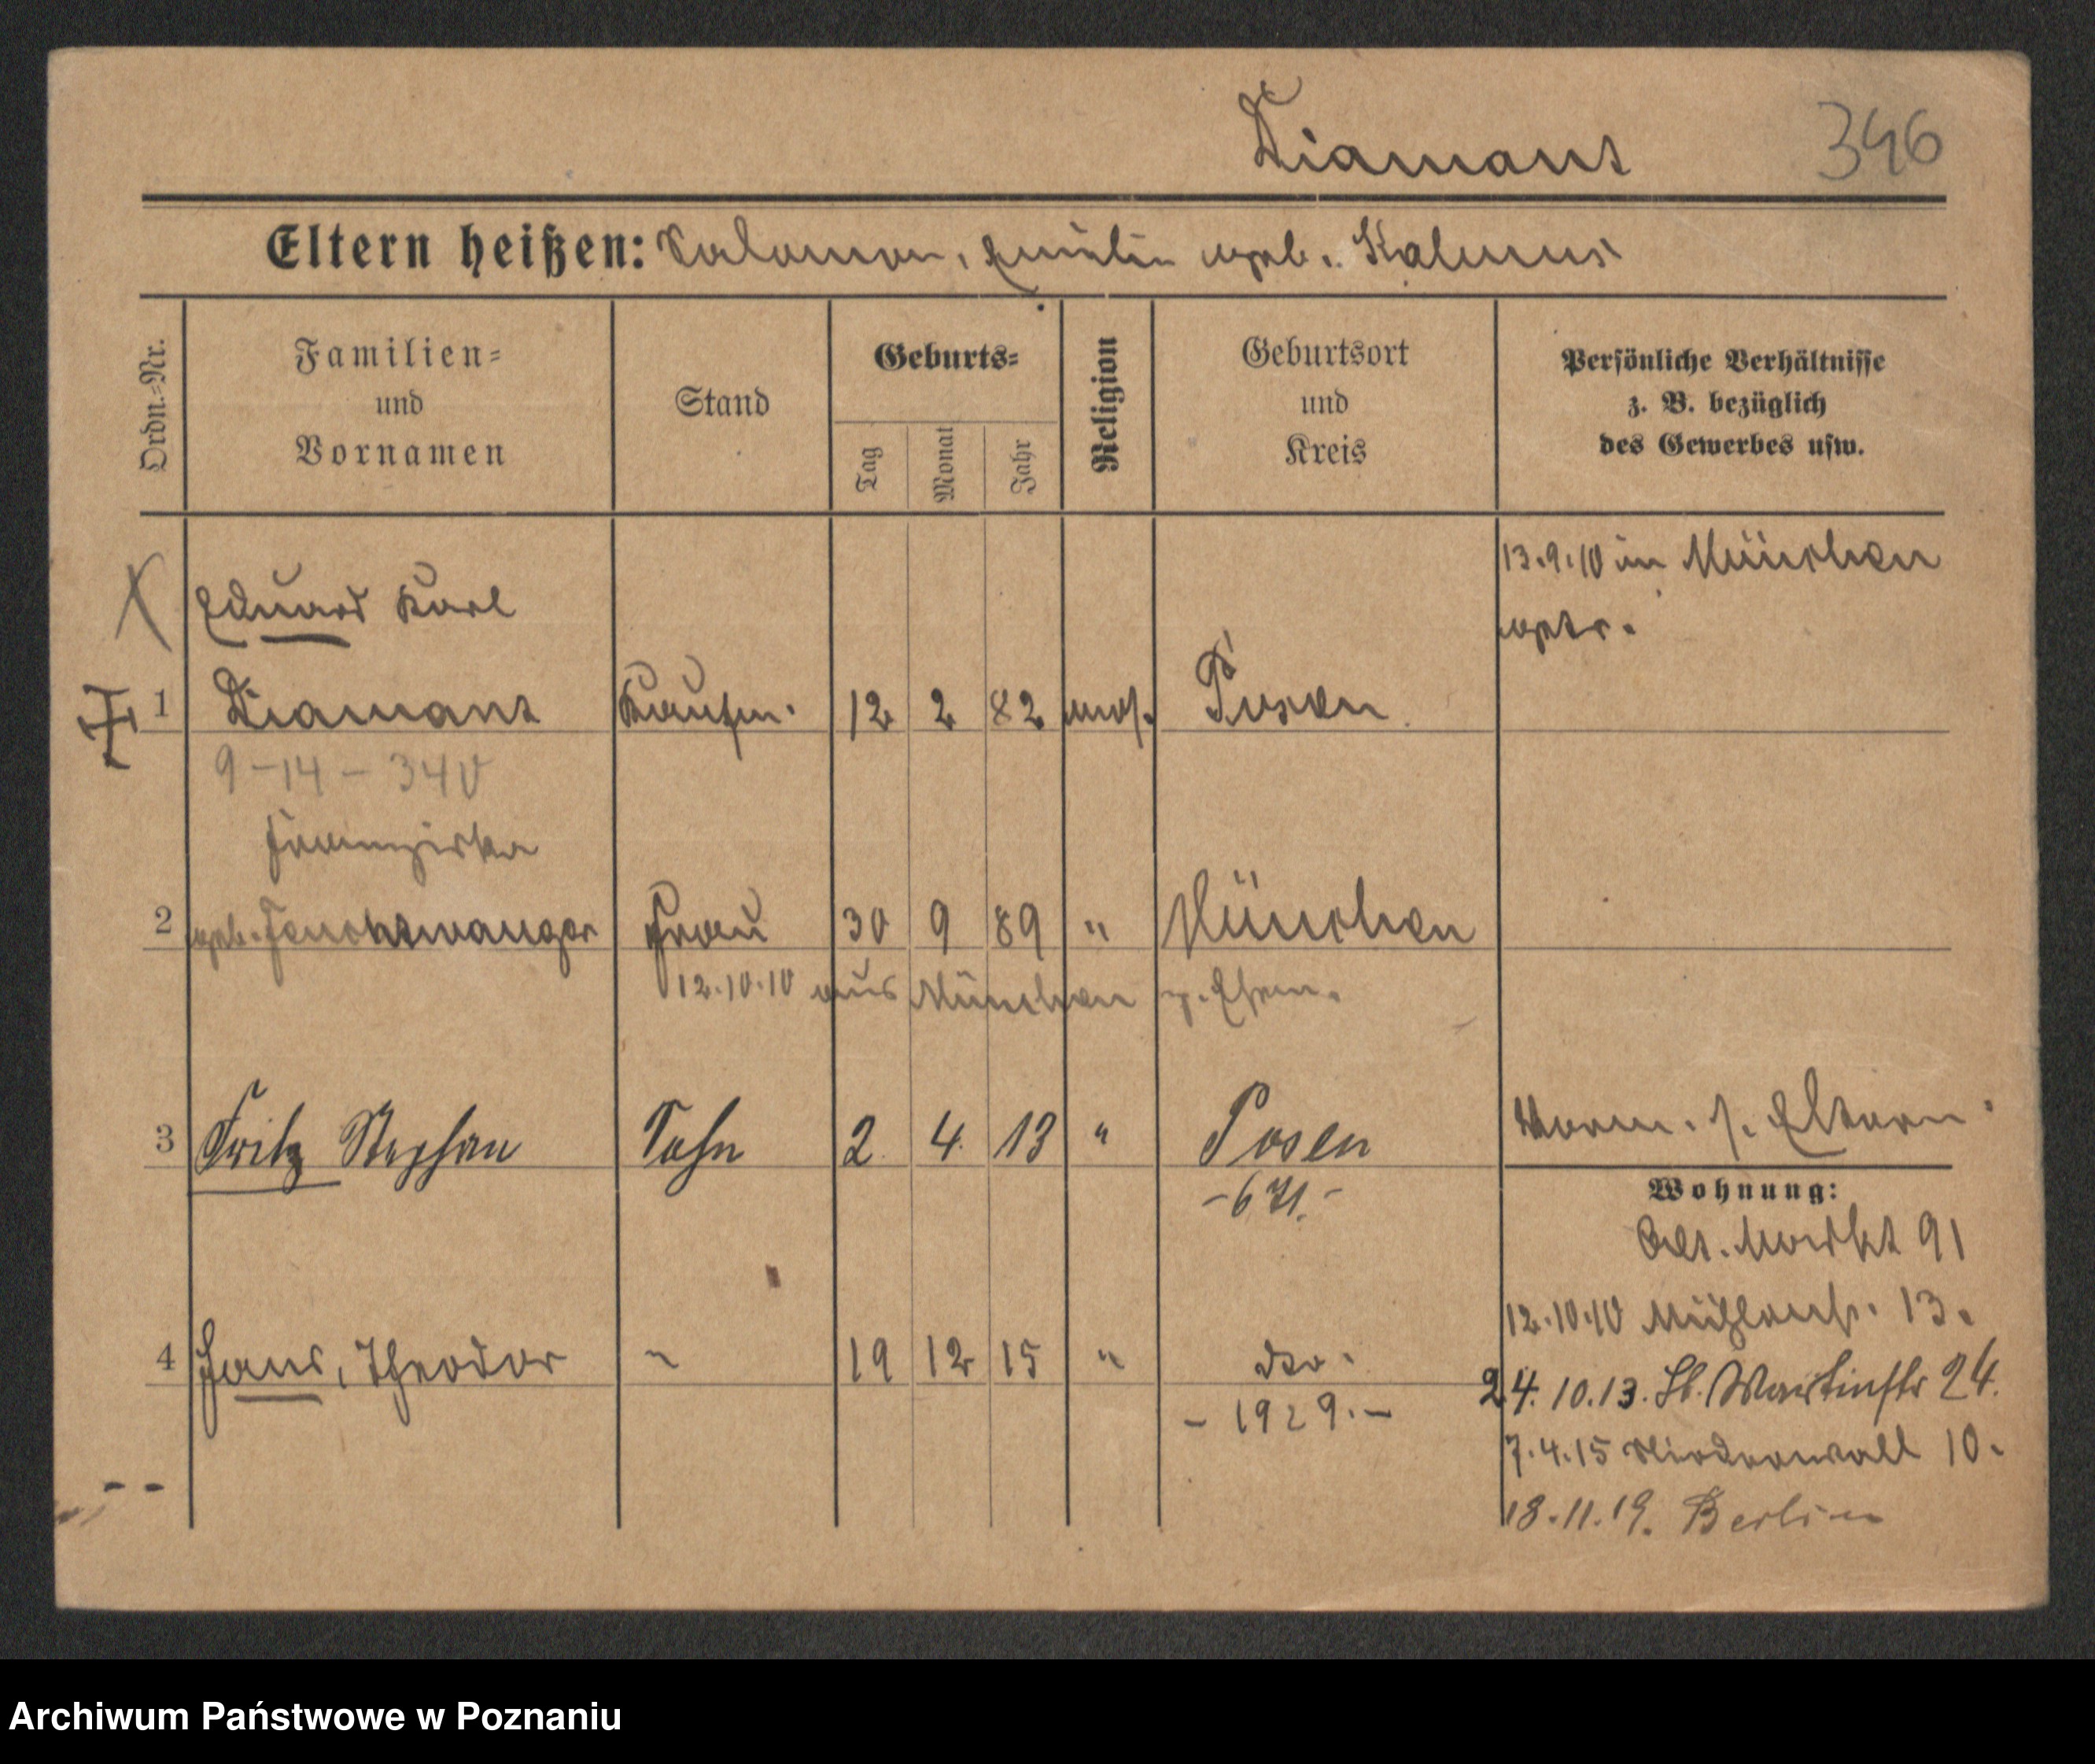 Diamant 346
Eltern heißen: Salomon, Emilie geb. Kalmus
Ordn.=Nr.
Familien=
und
Vornamen
Stand
Geburts=
Tag
Monat
Jahr
Religion
Geburtsort
und
Kreis
Persönliche Verhältnisse
z. B. bezüglich
des Gewerbes usw.
13.9.10 in München
getr.
Eduard Karl
1 Diamant Kaufm. 12 2 82 mos. Posen
9-14-340
Franziska
2 geb. Feuchtwanger Frau 30 9 89 " München
12.10.10 aus München z. Ehem.
3 Fritz Stephan Sohn 2. 4. 13 " Posen
Verm. s. Eltern
-671.-
Wohnung:
Alt. Markt 91
12.10.10 Mühlenstr. 13.
4 Hans, Theodor " 19 12 15 " dto.
24.10.13. St. Martinstr 24.
- 1929.-
7.4.15 Niederwall 10.
18.11.19. Berlin
Archiwum Państwowe w Poznaniu